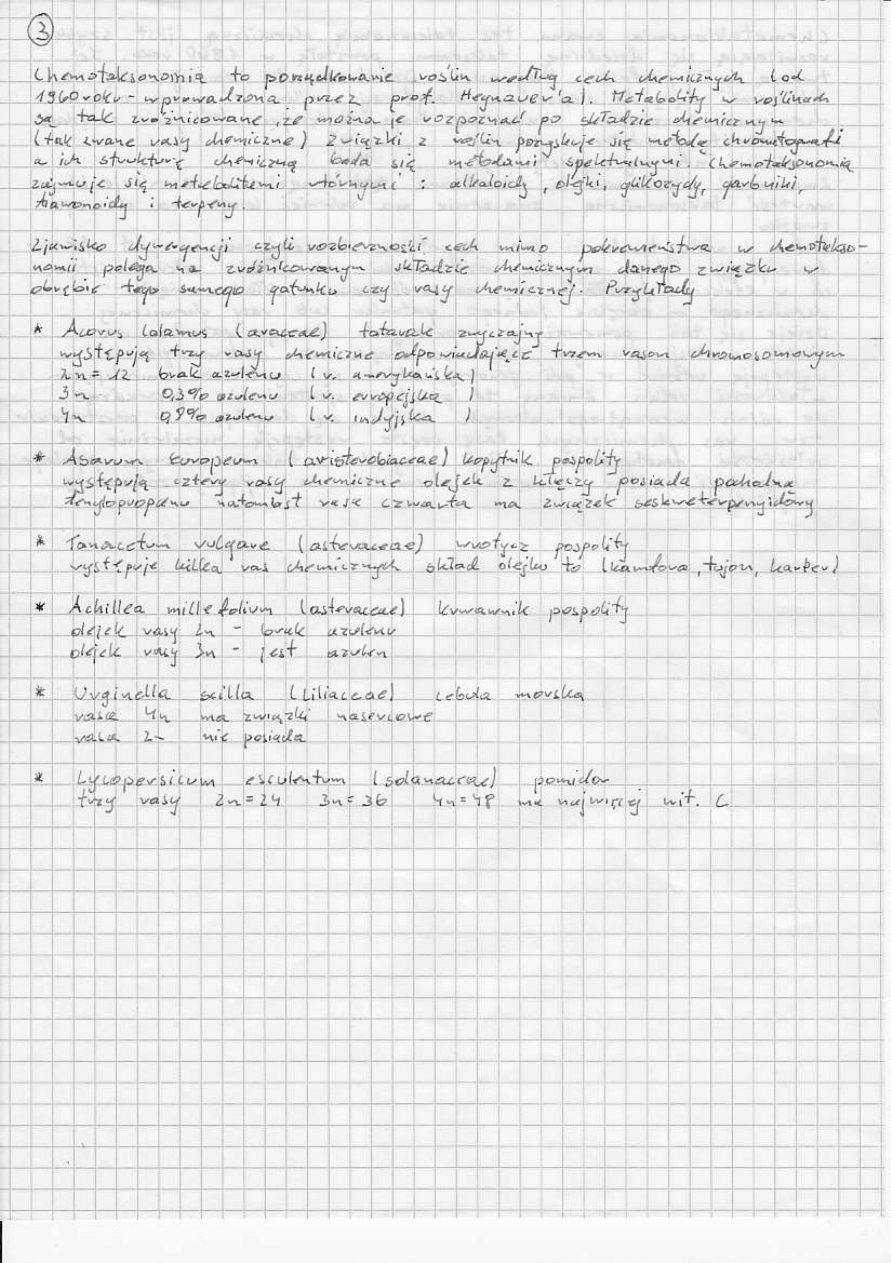 3
Chemotaksonomią to porządkowanie roślin według cech chemicznych (od
1960 roku - wprowadzona przez prof. Hegnauer'a). Metabolity w roślinach
są tak zróżnicowane, że można je rozpoznać po składzie chemicznym
(tak zwane rasy chemiczne) Związki z roślin pozyskuje się metodą chromatografi
a ich strukturę chemiczną bada się metodami spektralnymi. Chemotaksonomią
zajmuje się metabolitami wtórnymi : alkaloidy, olejki, glikozydy, garbniki,
flawonoidy i terpeny.
Zjawisko dywergencji czyli rozbieżności cech mimo pokrewieństwa w chemotakso-
nomii polega na zróżnicowanym składzie chemicznym danego związku w
obrębie tego samego gatunku czy rasy chemicznej. Przykłady
* Acorus Calamus (araceae) tatarak zwyczajny
występują trzy rasy chemiczne odpowiadające trzem rasom chromosomowym
2n = 12 brak azulenu (r. amerykańska)
3n 0,3% azulenu (r. europejska)
4n 0,8% azulenu (r. indyjska)
* Asarum Europeum (aristerobiaceae) kopytnik pospolity
występują cztery rasy chemiczne olejek z kłączy posiada pochodną
fenylopropanu natomiast rasa czwarta ma związek seskweterpenyidowy
* Tanacetum vulgare (asteraceae) wrotycz pospolity
występuje kilka ras chemicznych skład olejku to (kamfora, tujon,
* Achillea millefolium (asteraceae) krwawnik pospolity
olejek rasy 2n - brak azulenu
olejek rasy 3n - jest azulen
* Urginella scilla (Liliaceae) cebula morska
rasa 4n ma związki nasercowe
rasa 2- nie posiada
* Lycopersicum esculentum (solanaceae) pomidor
trzy rasy 2n=24 3n=36 4n=48 ma najwięcej wit. C